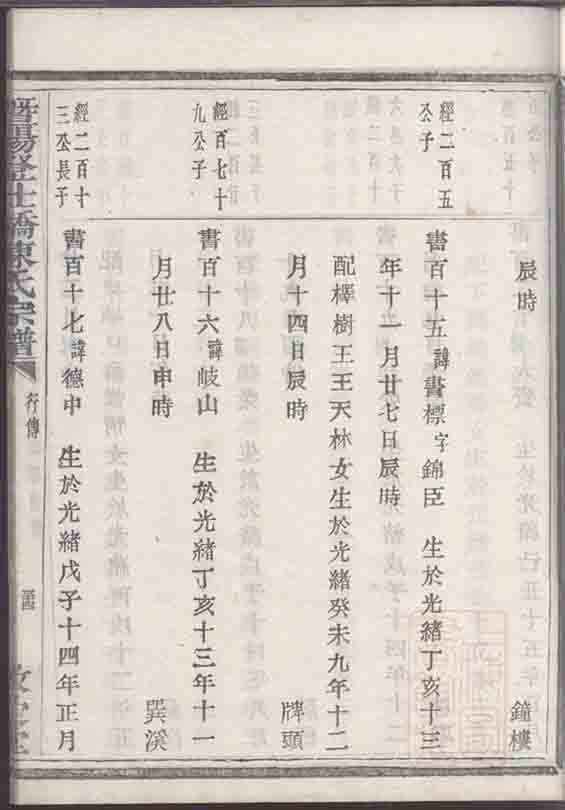 辰時 鐘樓
經二百五
公子
書百十五 諱書標 字錦臣 生於光緒丁亥十三
年十一月廿七日辰時
配檡樹王王天林女生於光緒癸未九年十二
月十四日辰時 牌頭
經百七十
九公子
書百十六 諱岐山 生於光緒丁亥十三年十一
月廿八日申時 巽溪
經二百十
三公長子
書百十七 諱德中 生於光緒戊子十四年正月
暨陽登仕橋陳氏宗譜
行傳